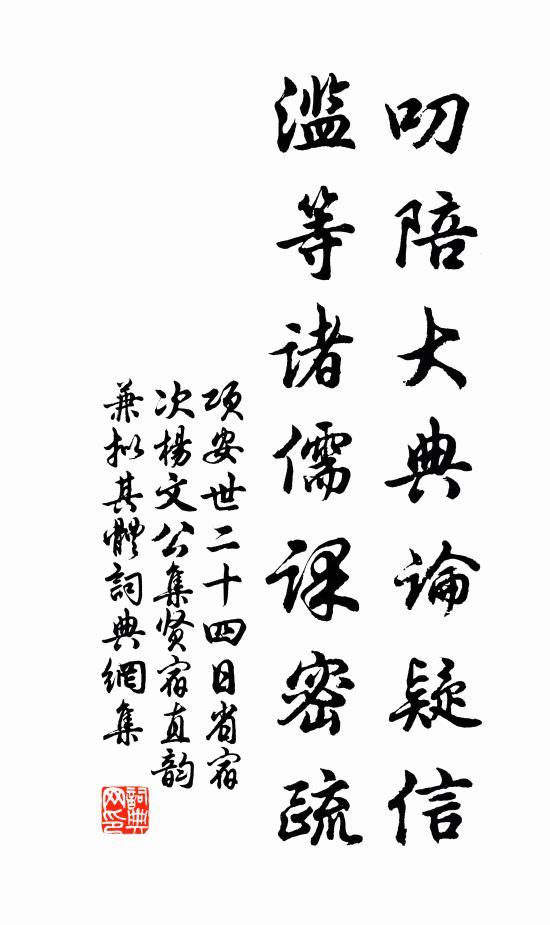 叨陪大典論疑信
滥等诸儒课密疏
项安世二十四日省宿
次楊文公集贤宿直韵
兼拟其體詞典網集
詞典网印